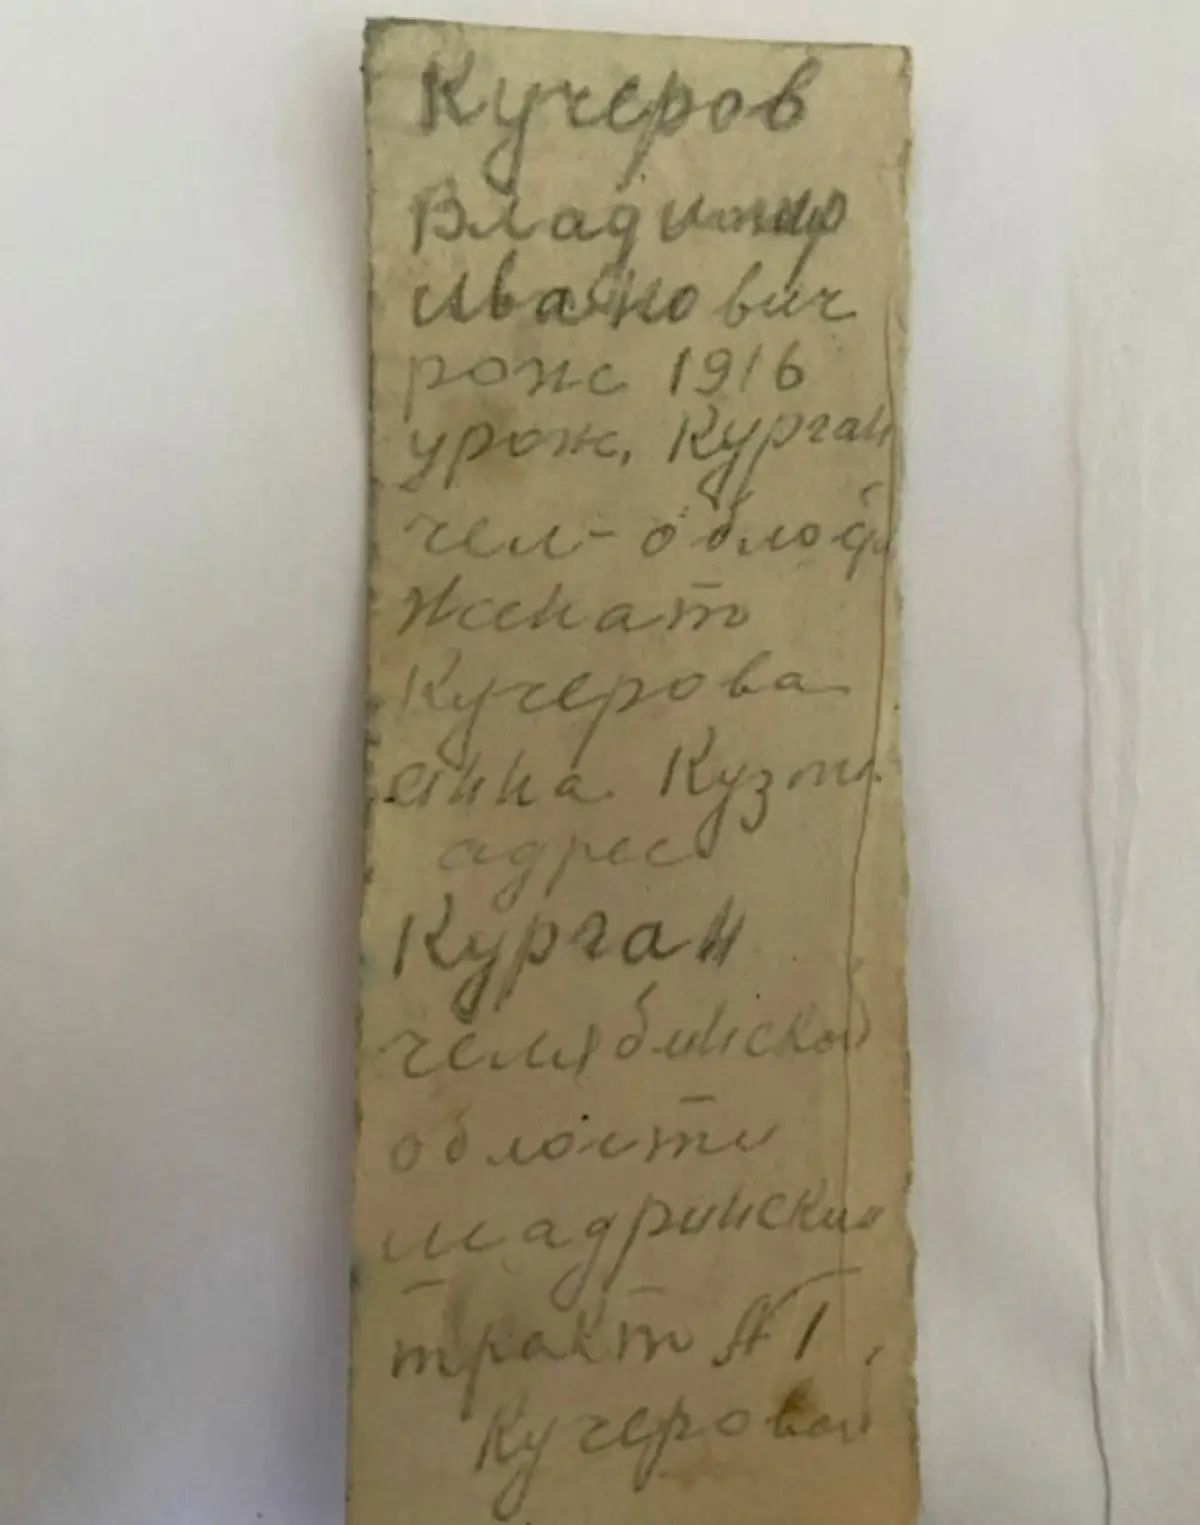 Кучеров
Владимир
Иванович
рожс 1916
урож. Курган
чел-облой
Женат
Кучерова
Анна Кузм
адрес
Курган
челябинской
облости
шадринский
тракт №1
Кучеровой